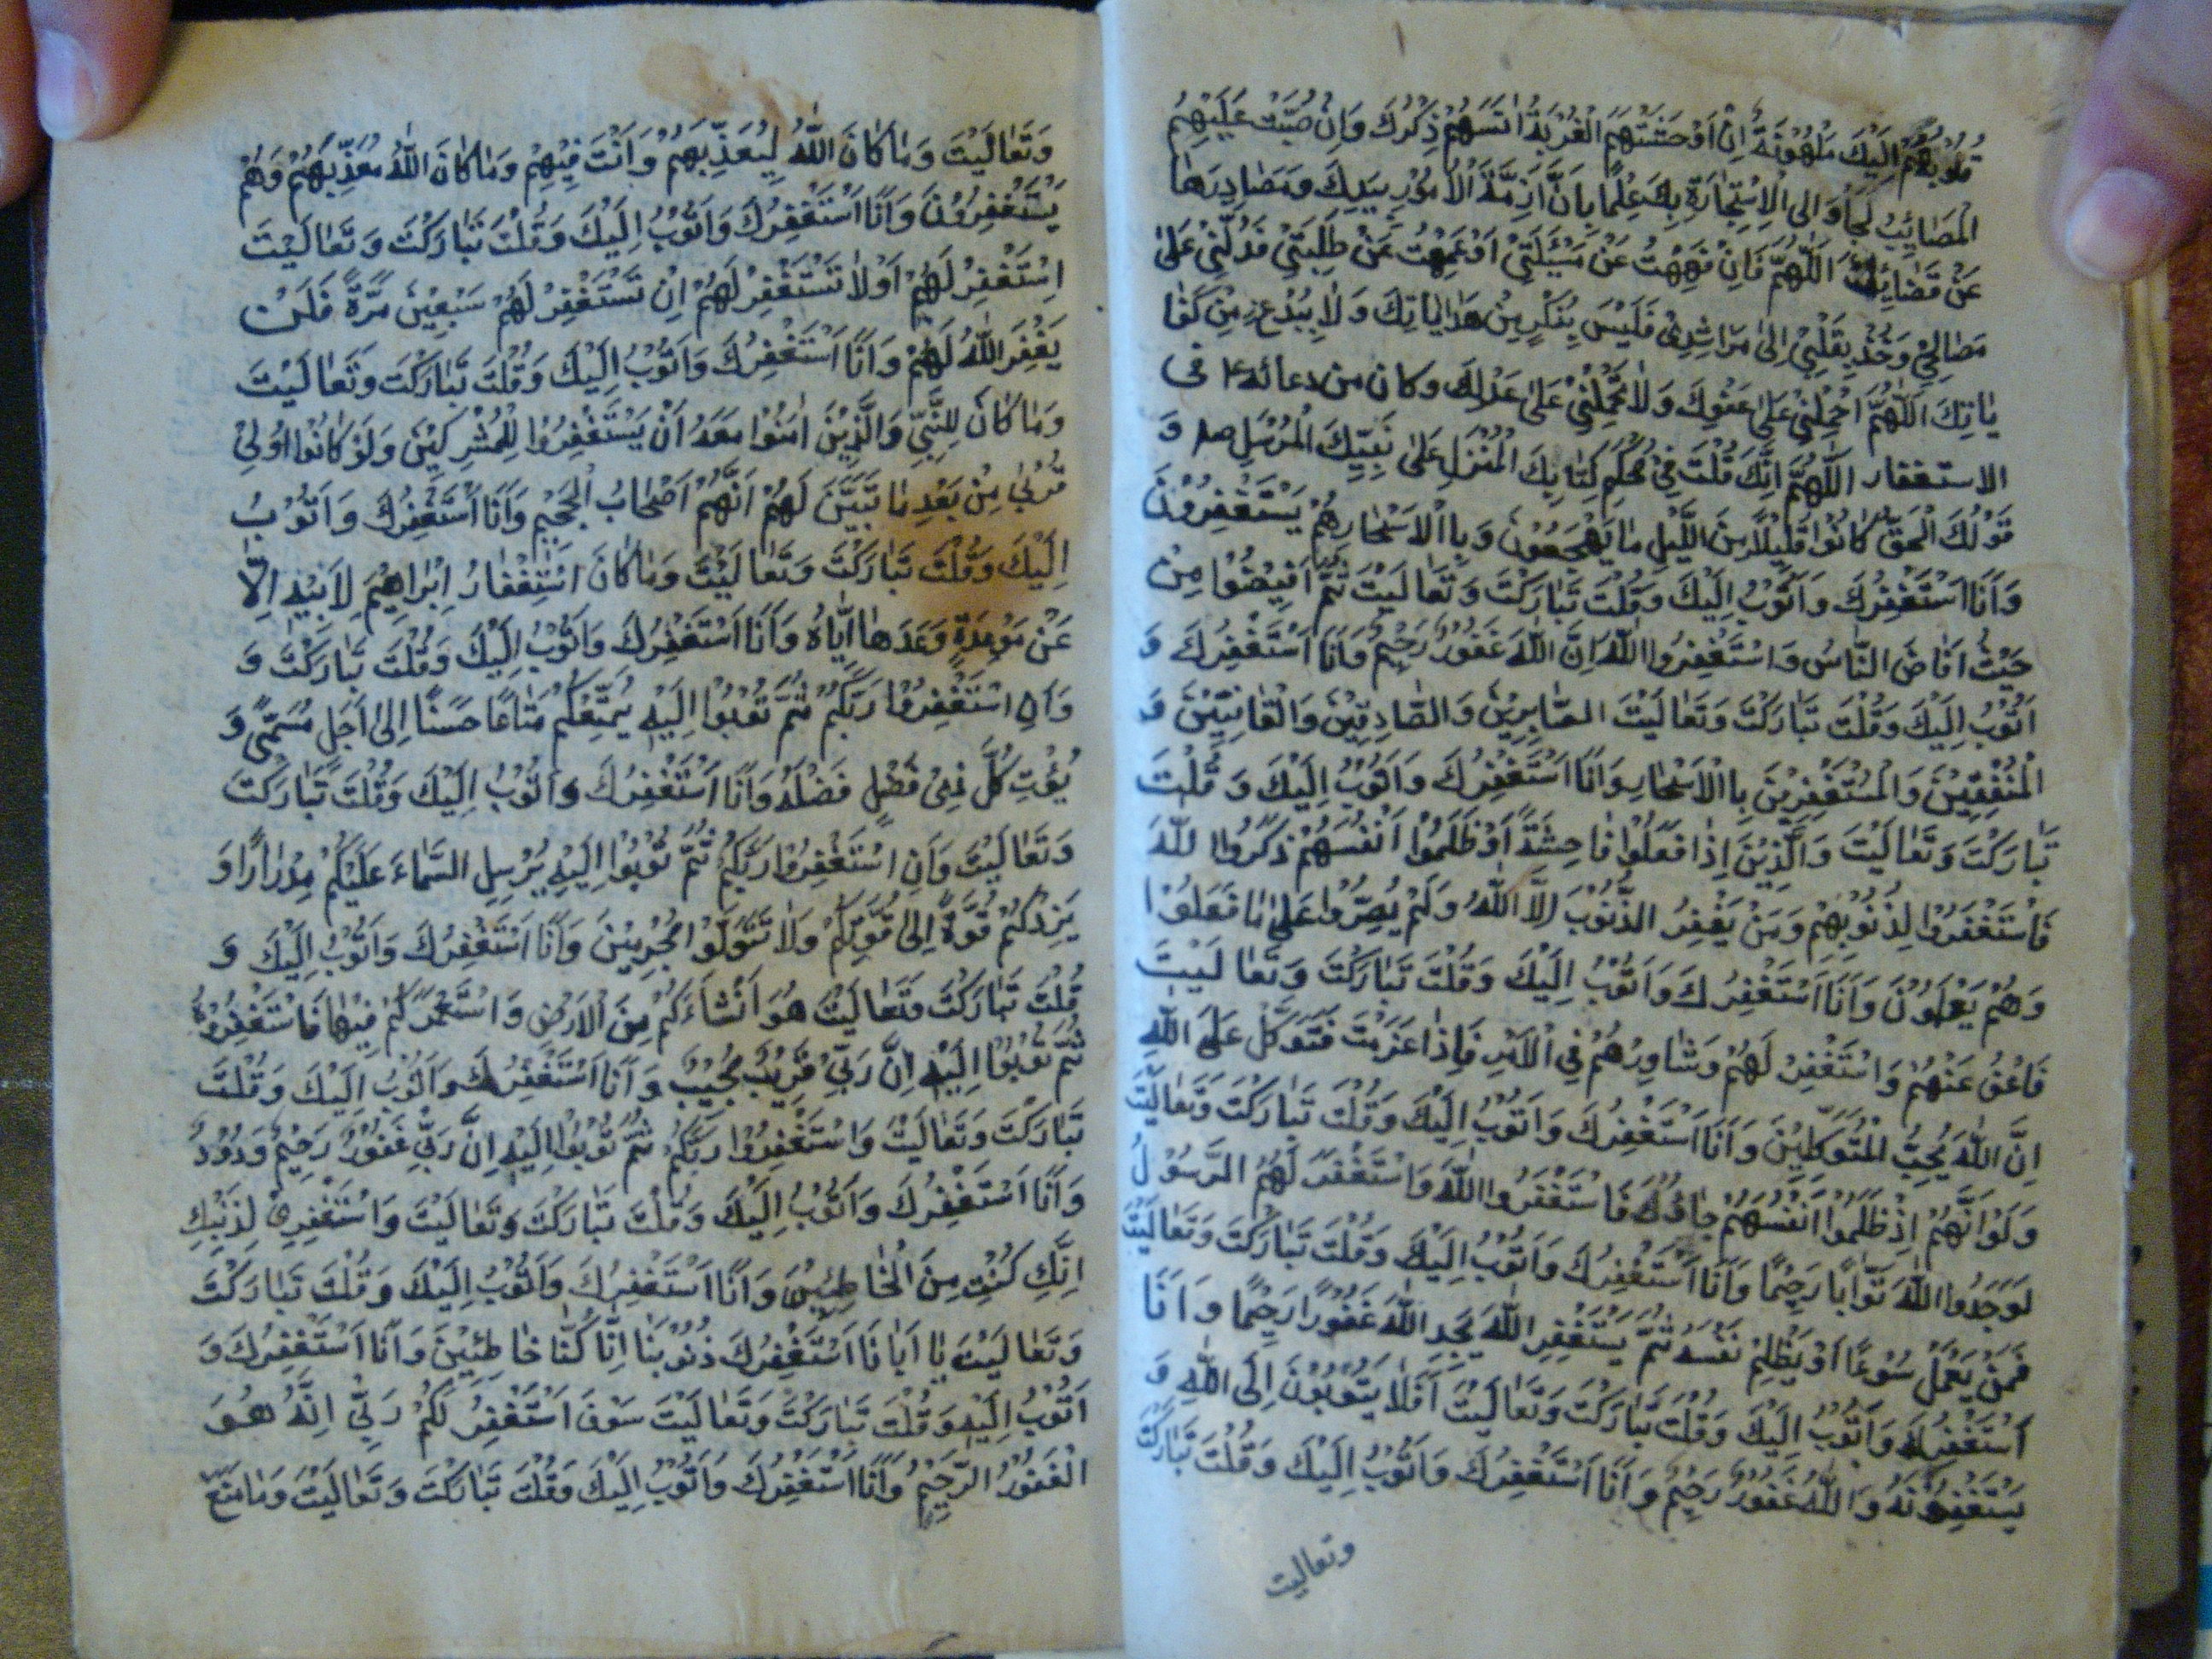 قُلُوبُهُمْ اِلَيْكَ مَلْهُوفَةٌ اِنْ اَوْحَشَتْهُمُ الْغُرْبَةُ انَسَهُمْ ذِكْرُكَ وَاِنْ صُبَّتْ عَلَيْهِمُ
الْمَصَائِبُ لَجَأُوا اِلَى الْاِسْتِجَارَةِ بِكَ عِلْمًا بِاَنَّ اَزِمَّةَ الْاُمُورِ بِيَدِكَ وَمَصَادِرَهَا
عَنْ قَضَائِكَ اَللّٰهُمَّ فَاِنْ فَهِهْتُ عَنْ مَسْئَلَتِيْ اَوْ عَمِهْتُ عَنْ طَلِبَتِيْ فَدُلَّنِيْ عَلٰى
مَصَالِحِيْ وَخُذْ بِقَلْبِيْ اِلٰى مَرَاشِدِيْ فَلَيْسَ بِنُكْرٍ مِنْ هِدَايَاتِكَ وَلَا بِبِدْعٍ مِنْ كَفَا
يَاتِكَ اَللّٰهُمَّ احْمِلْنِيْ عَلٰى عَفْوِكَ وَلَا تَحْمِلْنِيْ عَلٰى عَدْلِكَ وكان من دعائه ع في
الاستغفار اَللّٰهُمَّ اِنَّكَ قُلْتَ فِيْ مُحْكَمِ كِتَابِكَ الْمُنْزَلِ عَلٰى نَبِيِّكَ الْمُرْسَلِ ص وَ
قَوْلُكَ الْحَقُّ كَانُوْا قَلِيْلًا مِنَ اللَّيْلِ مَا يَهْجَعُوْنَ وَبِاالْاَسْحَارِ هُمْ يَسْتَغْفِرُوْنَ
وَاَنَا اَسْتَغْفِرُكَ وَاَتُوْبُ اِلَيْكَ وَقُلْتَ تَبَارَكْتَ وَتَعَالَيْتَ ثُمَّ اَفِيْضُوْا مِنْ
حَيْثُ اَفَاضَ النَّاسُ وَاسْتَغْفِرُوا اللّٰهَ اِنَّ اللّٰهَ غَفُوْرٌ رَحِيْمٌ وَاَنَا اَسْتَغْفِرُكَ وَ
اَتُوْبُ اِلَيْكَ وَقُلْتَ تَبَارَكْتَ وَتَعَالَيْتَ الصَّابِرِيْنَ وَالصَّادِقِيْنَ وَالْقَانِتِيْنَ وَ
الْمُنْفِقِيْنَ وَالْمُسْتَغْفِرِيْنَ بِاالْاَسْحَارِ وَاَنَا اَسْتَغْفِرُكَ وَاَتُوْبُ اِلَيْكَ وَقُلْتَ
تَبَارَكْتَ وَتَعَالَيْتَ وَالَّذِيْنَ اِذَا فَعَلُوْا فَاحِشَةً اَوْ ظَلَمُوْا اَنْفُسَهُمْ ذَكَرُوا اللّٰهَ
فَاسْتَغْفَرُوْا لِذُنُوْبِهِمْ وَمَنْ يَغْفِرُ الذُّنُوْبَ اِلَّا اللّٰهُ وَلَمْ يُصِرُّوْا عَلٰى مَا فَعَلُوْا
وَهُمْ يَعْلَمُوْنَ وَاَنَا اَسْتَغْفِرُكَ وَاَتُوْبُ اِلَيْكَ وَقُلْتَ تَبَارَكْتَ وَتَعَالَيْتَ
فَاعْفُ عَنْهُمْ وَاسْتَغْفِرْ لَهُمْ وَشَاوِرْهُمْ فِي الْاَمْرِ فَاِذَا عَزَمْتَ فَتَوَكَّلْ عَلَى اللّٰهِ
اِنَّ اللّٰهَ يُحِبُّ الْمُتَوَكِّلِيْنَ وَاَنَا اَسْتَغْفِرُكَ وَاَتُوْبُ اِلَيْكَ وَقُلْتَ تَبَارَكْتَ وَتَعَالَيْتَ
وَلَوْ اَنَّهُمْ اِذْ ظَلَمُوْا اَنْفُسَهُمْ جَاؤُكَ فَاسْتَغْفَرُوا اللّٰهَ وَاسْتَغْفَرَ لَهُمُ الرَّسُوْلُ
لَوَجَدُوا اللّٰهَ تَوَّابًا رَحِيْمًا وَاَنَا اَسْتَغْفِرُكَ وَاَتُوْبُ اِلَيْكَ وَقُلْتَ تَبَارَكْتَ وَتَعَالَيْتَ
فَمَنْ يَعْمَلْ سُوْءًا اَوْ يَظْلِمْ نَفْسَهُ ثُمَّ يَسْتَغْفِرِ اللّٰهَ يَجِدِ اللّٰهَ غَفُوْرًا رَحِيْمًا وَاَنَا
اَسْتَغْفِرُكَ وَاَتُوْبُ اِلَيْكَ وَقُلْتَ تَبَارَكْتَ وَتَعَالَيْتَ اَفَلَا يَتُوْبُوْنَ اِلَى اللّٰهِ وَ
يَسْتَغْفِرُوْنَهُ وَاللّٰهُ غَفُوْرٌ رَحِيْمٌ وَاَنَا اَسْتَغْفِرُكَ وَاَتُوْبُ اِلَيْكَ وَقُلْتَ تَبَارَكْتَ
وتعاليت
وَتَعَالَيْتَ وَمَا كَانَ اللّٰهُ لِيُعَذِّبَهُمْ وَاَنْتَ فِيْهِمْ وَمَا كَانَ اللّٰهُ مُعَذِّبَهُمْ وَهُمْ
يَسْتَغْفِرُوْنَ وَاَنَا اَسْتَغْفِرُكَ وَاَتُوْبُ اِلَيْكَ وَقُلْتَ تَبَارَكْتَ وَتَعَالَيْتَ
اِسْتَغْفِرْ لَهُمْ اَوْ لَا تَسْتَغْفِرْ لَهُمْ اِنْ تَسْتَغْفِرْ لَهُمْ سَبْعِيْنَ مَرَّةً فَلَنْ
يَغْفِرَ اللّٰهُ لَهُمْ وَاَنَا اَسْتَغْفِرُكَ وَاَتُوْبُ اِلَيْكَ وَقُلْتَ تَبَارَكْتَ وَتَعَالَيْتَ
وَمَا كَانَ لِلنَّبِيِّ وَالَّذِيْنَ امَنُوْا مَعَهُ اَنْ يَسْتَغْفِرُوْا لِلْمُشْرِكِيْنَ وَلَوْ كَانُوْا اُولِيْ
قُرْبٰى مِنْ بَعْدِ مَا تَبَيَّنَ لَهُمْ اَنَّهُمْ اَصْحَابُ الْجَحِيْمِ وَاَنَا اَسْتَغْفِرُكَ وَاَتُوْبُ
اِلَيْكَ وَقُلْتَ تَبَارَكْتَ وَتَعَالَيْتَ وَمَا كَانَ اسْتِغْفَارُ اِبْرَاهِيْمَ لِاَبِيْهِ اِلَّا
عَنْ مَوْعِدَةٍ وَعَدَهَا اِيَّاهُ وَاَنَا اَسْتَغْفِرُكَ وَاَتُوْبُ اِلَيْكَ وَقُلْتَ تَبَارَكْتَ وَ
وَاَنِ اسْتَغْفِرُوْا رَبَّكُمْ ثُمَّ تُوْبُوْا اِلَيْهِ يُمَتِّعْكُمْ مَتَاعًا حَسَنًا اِلٰى اَجَلٍ مُسَمًّى وَ
يُؤْتِ كُلَّ ذِيْ فَضْلٍ فَضْلَهُ وَاَنَا اَسْتَغْفِرُكَ وَاَتُوْبُ اِلَيْكَ وَقُلْتَ تَبَارَكْتَ
وَتَعَالَيْتَ وَاَنِ اسْتَغْفِرُوْا رَبَّكُمْ ثُمَّ تُوْبُوْا اِلَيْهِ يُرْسِلِ السَّمَاءَ عَلَيْكُمْ مِدْرَارًا وَ
يَزِدْكُمْ قُوَّةً اِلٰى قُوَّتِكُمْ وَلَا تَتَوَلَّوْا مُجْرِمِيْنَ وَاَنَا اَسْتَغْفِرُكَ وَاَتُوْبُ اِلَيْكَ وَ
قُلْتَ تَبَارَكْتَ وَتَعَالَيْتَ هُوَ اَنْشَاَكُمْ مِنَ الْاَرْضِ وَاسْتَعْمَرَكُمْ فِيْهَا فَاسْتَغْفِرُوْهُ
ثُمَّ تُوْبُوْا اِلَيْهِ اِنَّ رَبِّيْ قَرِيْبٌ مُجِيْبٌ وَاَنَا اَسْتَغْفِرُكَ وَاَتُوْبُ اِلَيْكَ وَقُلْتَ
تَبَارَكْتَ وَتَعَالَيْتَ وَاسْتَغْفِرُوْا رَبَّكُمْ ثُمَّ تُوْبُوْا اِلَيْهِ اِنَّ رَبِّيْ غَفُوْرٌ رَحِيْمٌ وَدُوْدٌ
وَاَنَا اَسْتَغْفِرُكَ وَاَتُوْبُ اِلَيْكَ وَقُلْتَ تَبَارَكْتَ وَتَعَالَيْتَ وَاسْتَغْفِرِيْ لِذَنْبِكِ
اِنَّكِ كُنْتِ مِنَ الْخَاطِئِيْنَ وَاَنَا اَسْتَغْفِرُكَ وَاَتُوْبُ اِلَيْكَ وَقُلْتَ تَبَارَكْتَ
وَتَعَالَيْتَ يَا اَبَانَا اَسْتَغْفِرُكَ ذُنُوْبَنَا اِنَّا كُنَّا خَاطِئِيْنَ وَاَنَا اَسْتَغْفِرُكَ وَ
اَتُوْبُ اِلَيْهِ وَقُلْتَ تَبَارَكْتَ وَتَعَالَيْتَ سَوْفَ اَسْتَغْفِرُ لَكُمْ رَبِّيْ اِنَّهُ هُوَ
الْغَفُوْرُ الرَّحِيْمُ وَاَنَا اَسْتَغْفِرُكَ وَاَتُوْبُ اِلَيْكَ وَقُلْتَ تَبَارَكْتَ وَتَعَالَيْتَ وَمَا مَنَعَ